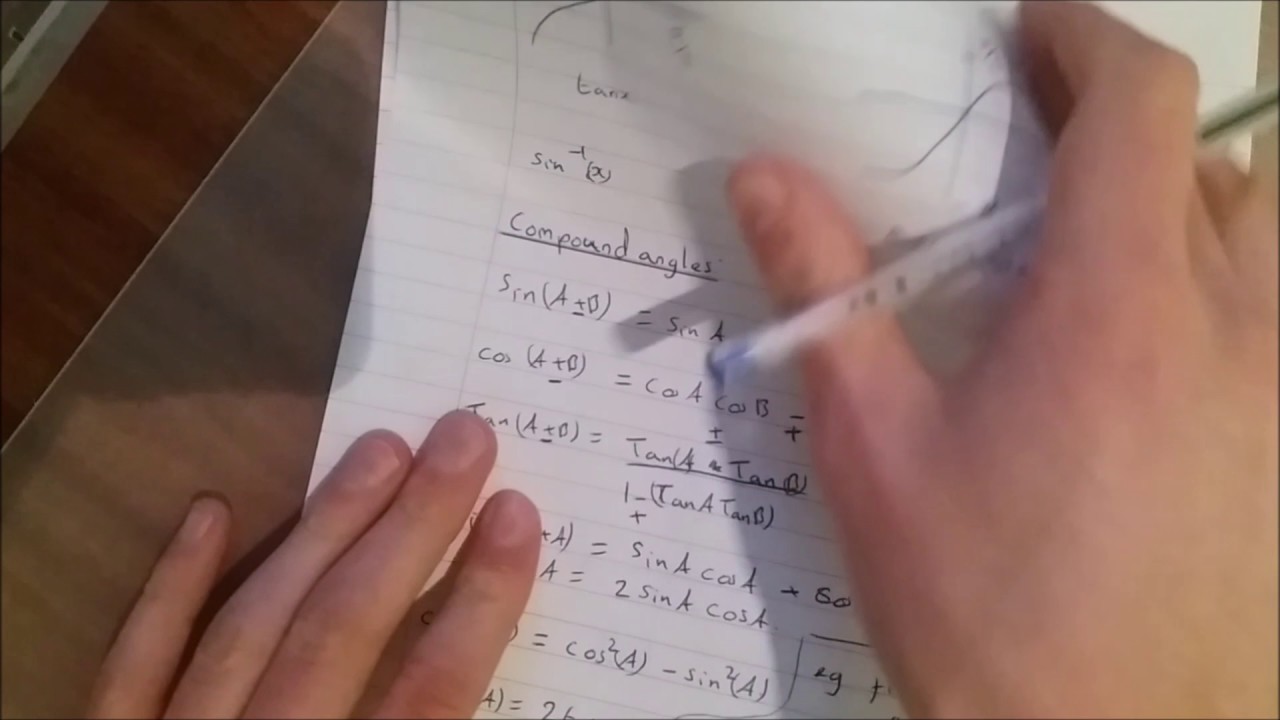 tanx
sin⁻¹(x)
Compound angles
Sin(A±B) = sin A
cos (A±B) = coA cosB ∓
Tan(A±B) = Tan(A ± TanB)
1∓(TanA TanB)
+A) = sinA cosA +
A = 2 sinA cosA
= cos²(A) - sin²(A)
eg
A) = 2